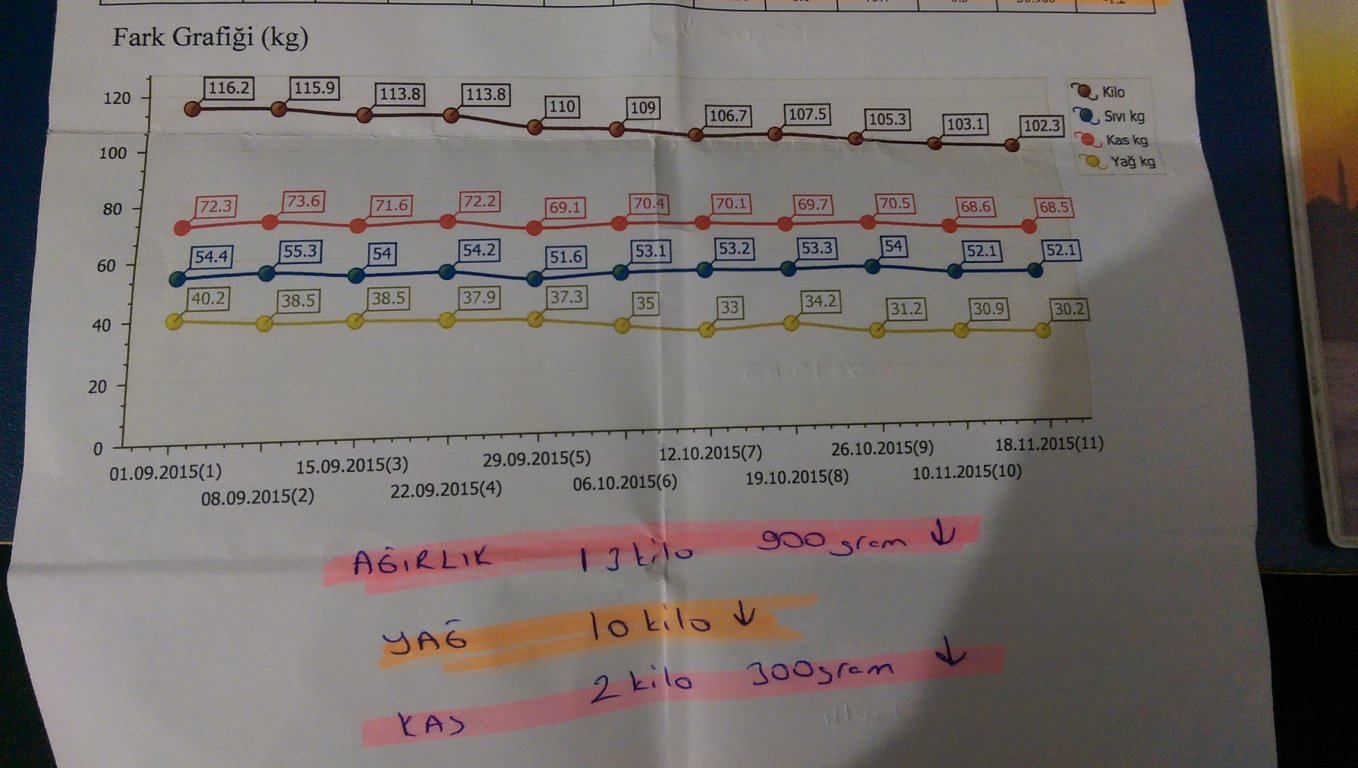 Fark Grafiği (kg)
116.2 115.9 113.8 113.8 110 109 106.7 107.5 105.3 103.1 102.3
Kilo
Sıvı kg
Kas kg
Yağ kg
72.3 73.6 71.6 72.2 69.1 70.4 70.1 69.7 70.5 68.6 68.5
54.4 55.3 54 54.2 51.6 53.1 53.2 53.3 54 52.1 52.1
40.2 38.5 38.5 37.9 37.3 35 33 34.2 31.2 30.9 30.2
120
100
80
60
40
20
0
01.09.2015(1) 15.09.2015(3) 29.09.2015(5) 12.10.2015(7) 26.10.2015(9) 18.11.2015(11)
08.09.2015(2) 22.09.2015(4) 06.10.2015(6) 19.10.2015(8) 10.11.2015(10)
AĞIRLIK 13 kilo 900 gram ↓
YAĞ 10 kilo ↓
KAS 2 kilo 300gram ↓